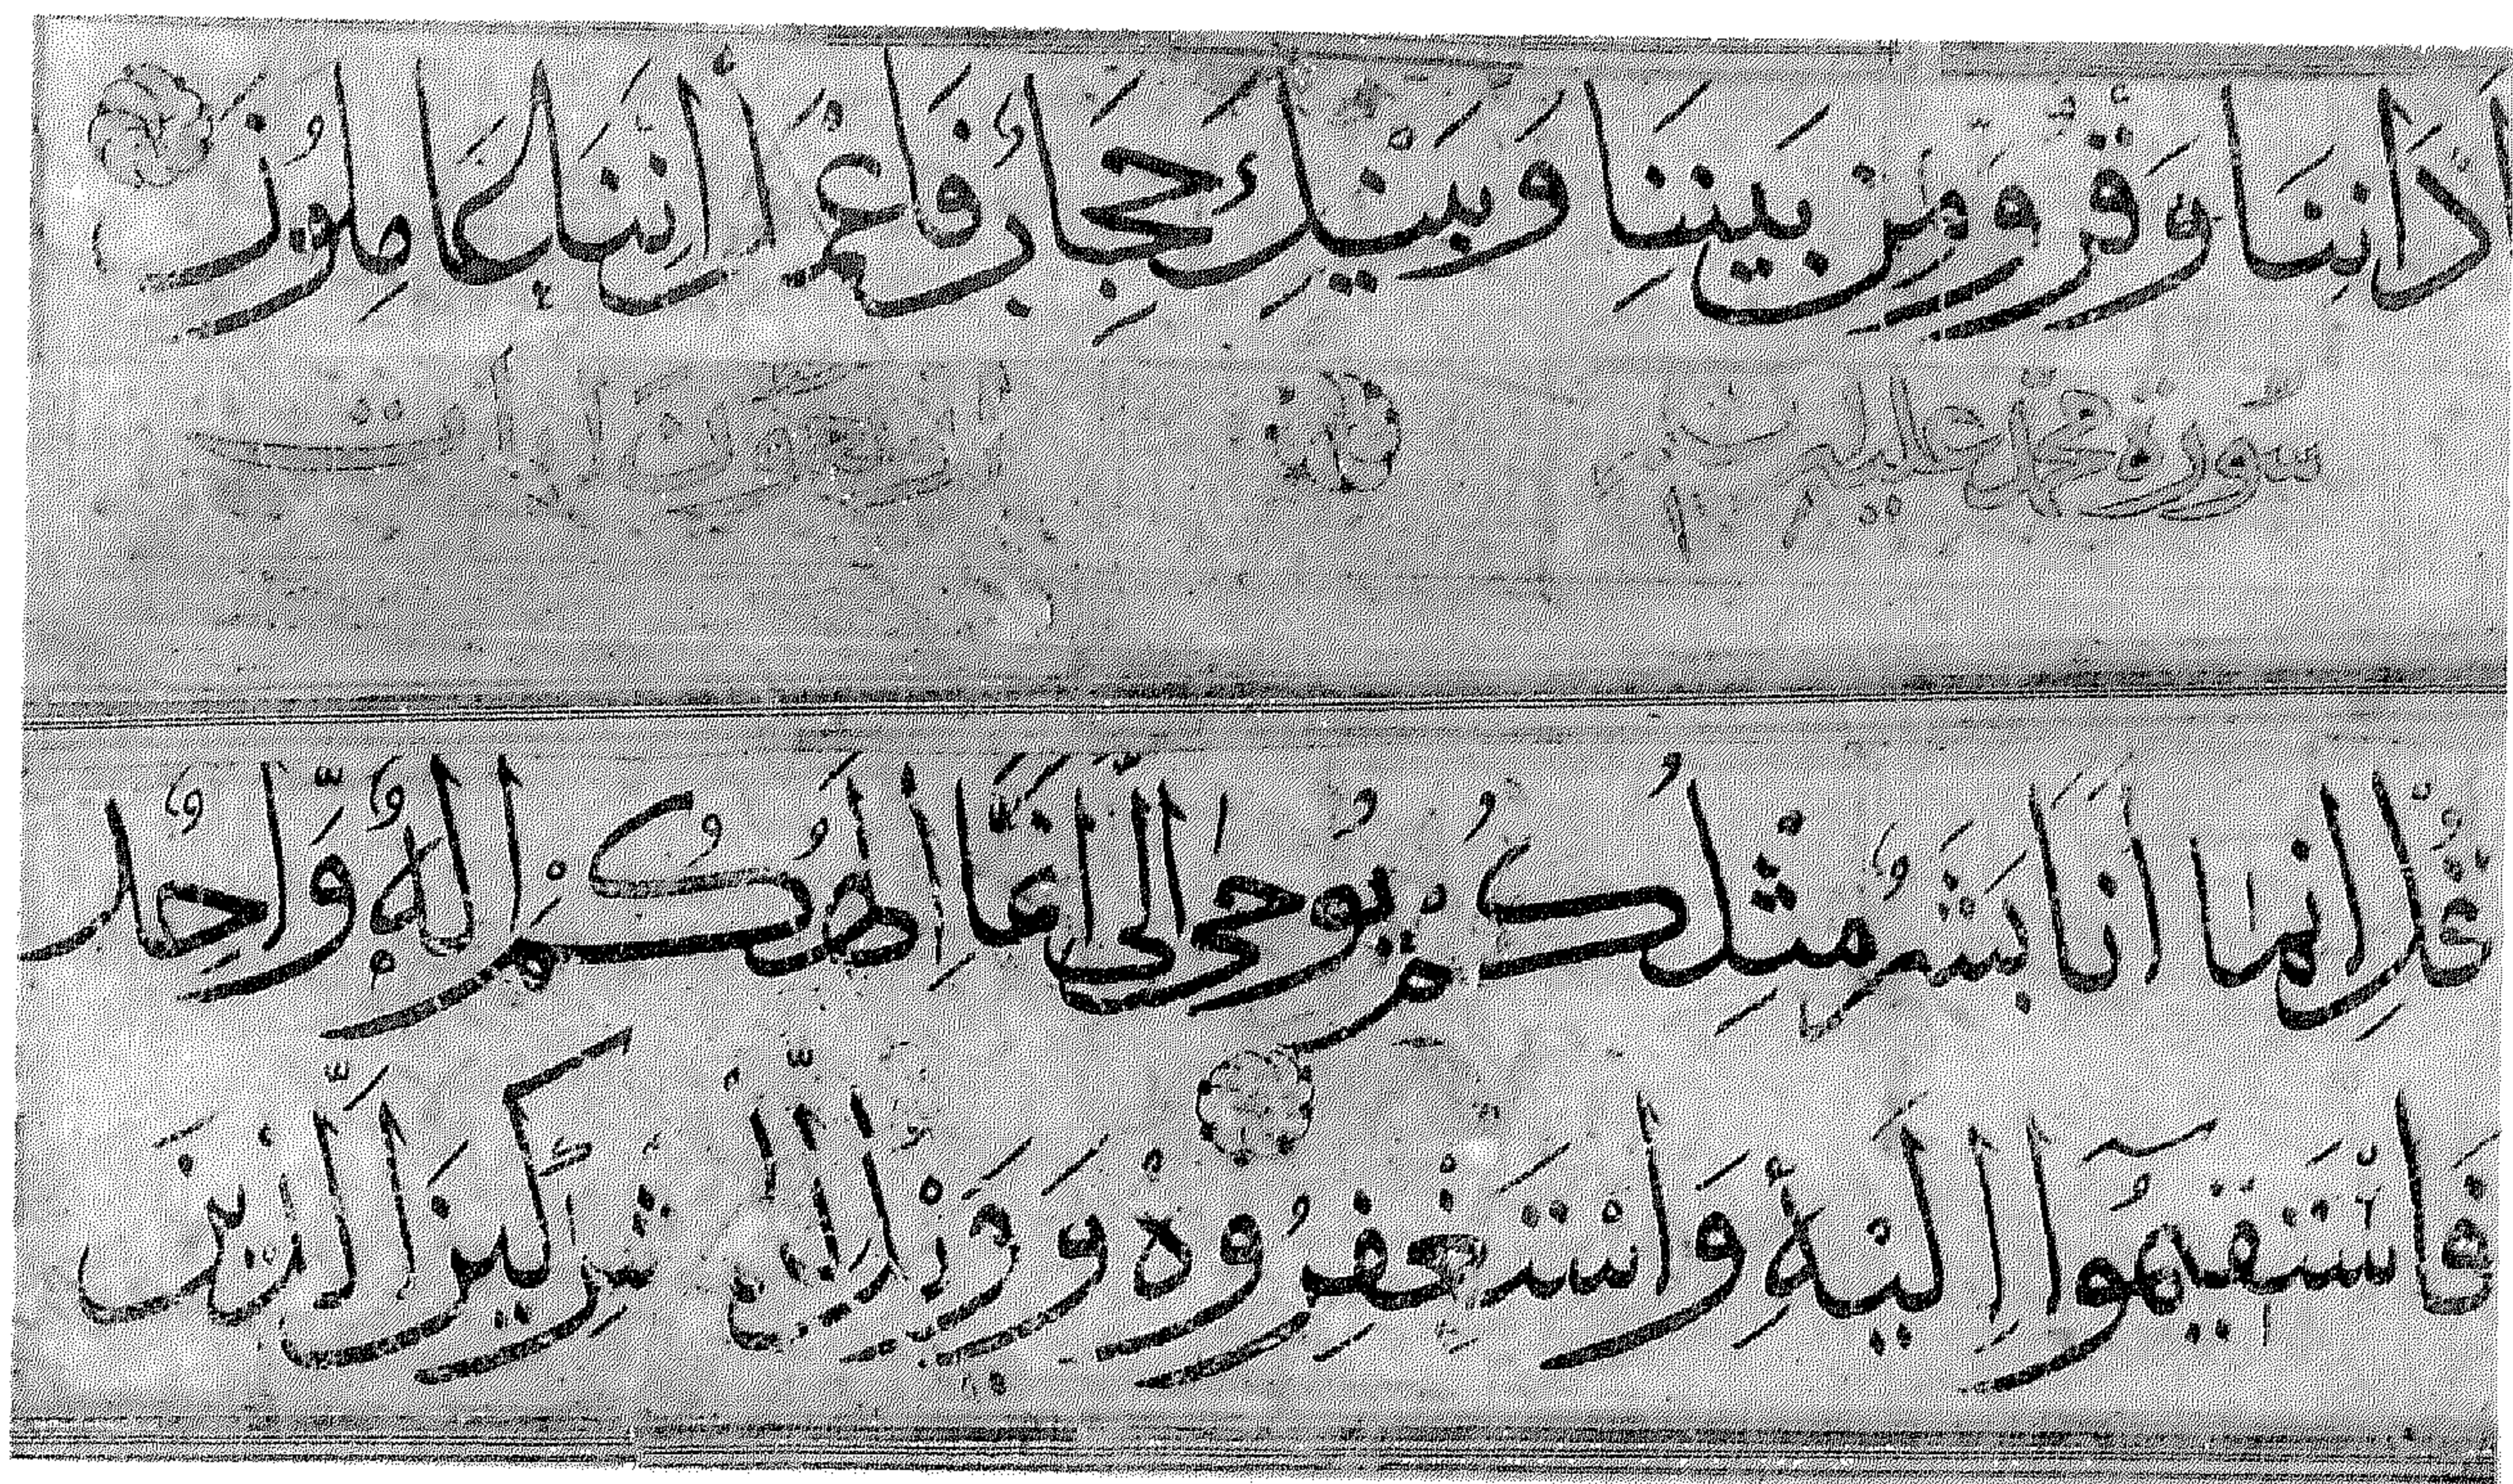 اذَانِنَا وَقْرٌ وَمِن بَيْنِنَا وَبَيْنِكَ حِجَابٌ فَاعْمَلْ أِنَّنَا عَامِلُونَ
سورة محمد عليه
قُلْ اِنَّمَا اَنَا بَشَرٌ مِثْلُكُمْ يُوحَىٰ اِلَىَّ اَنَّمَا اِلَهُكُمْ اِلَهٌ وَّاحِدٌ
فَاسْتَقِيمُوٓا اِلَيْهِ وَاسْتَغْفِرُوهُ وَوَيْلٌ لِّلْمُشْرِكِينَ الَّذِينَ